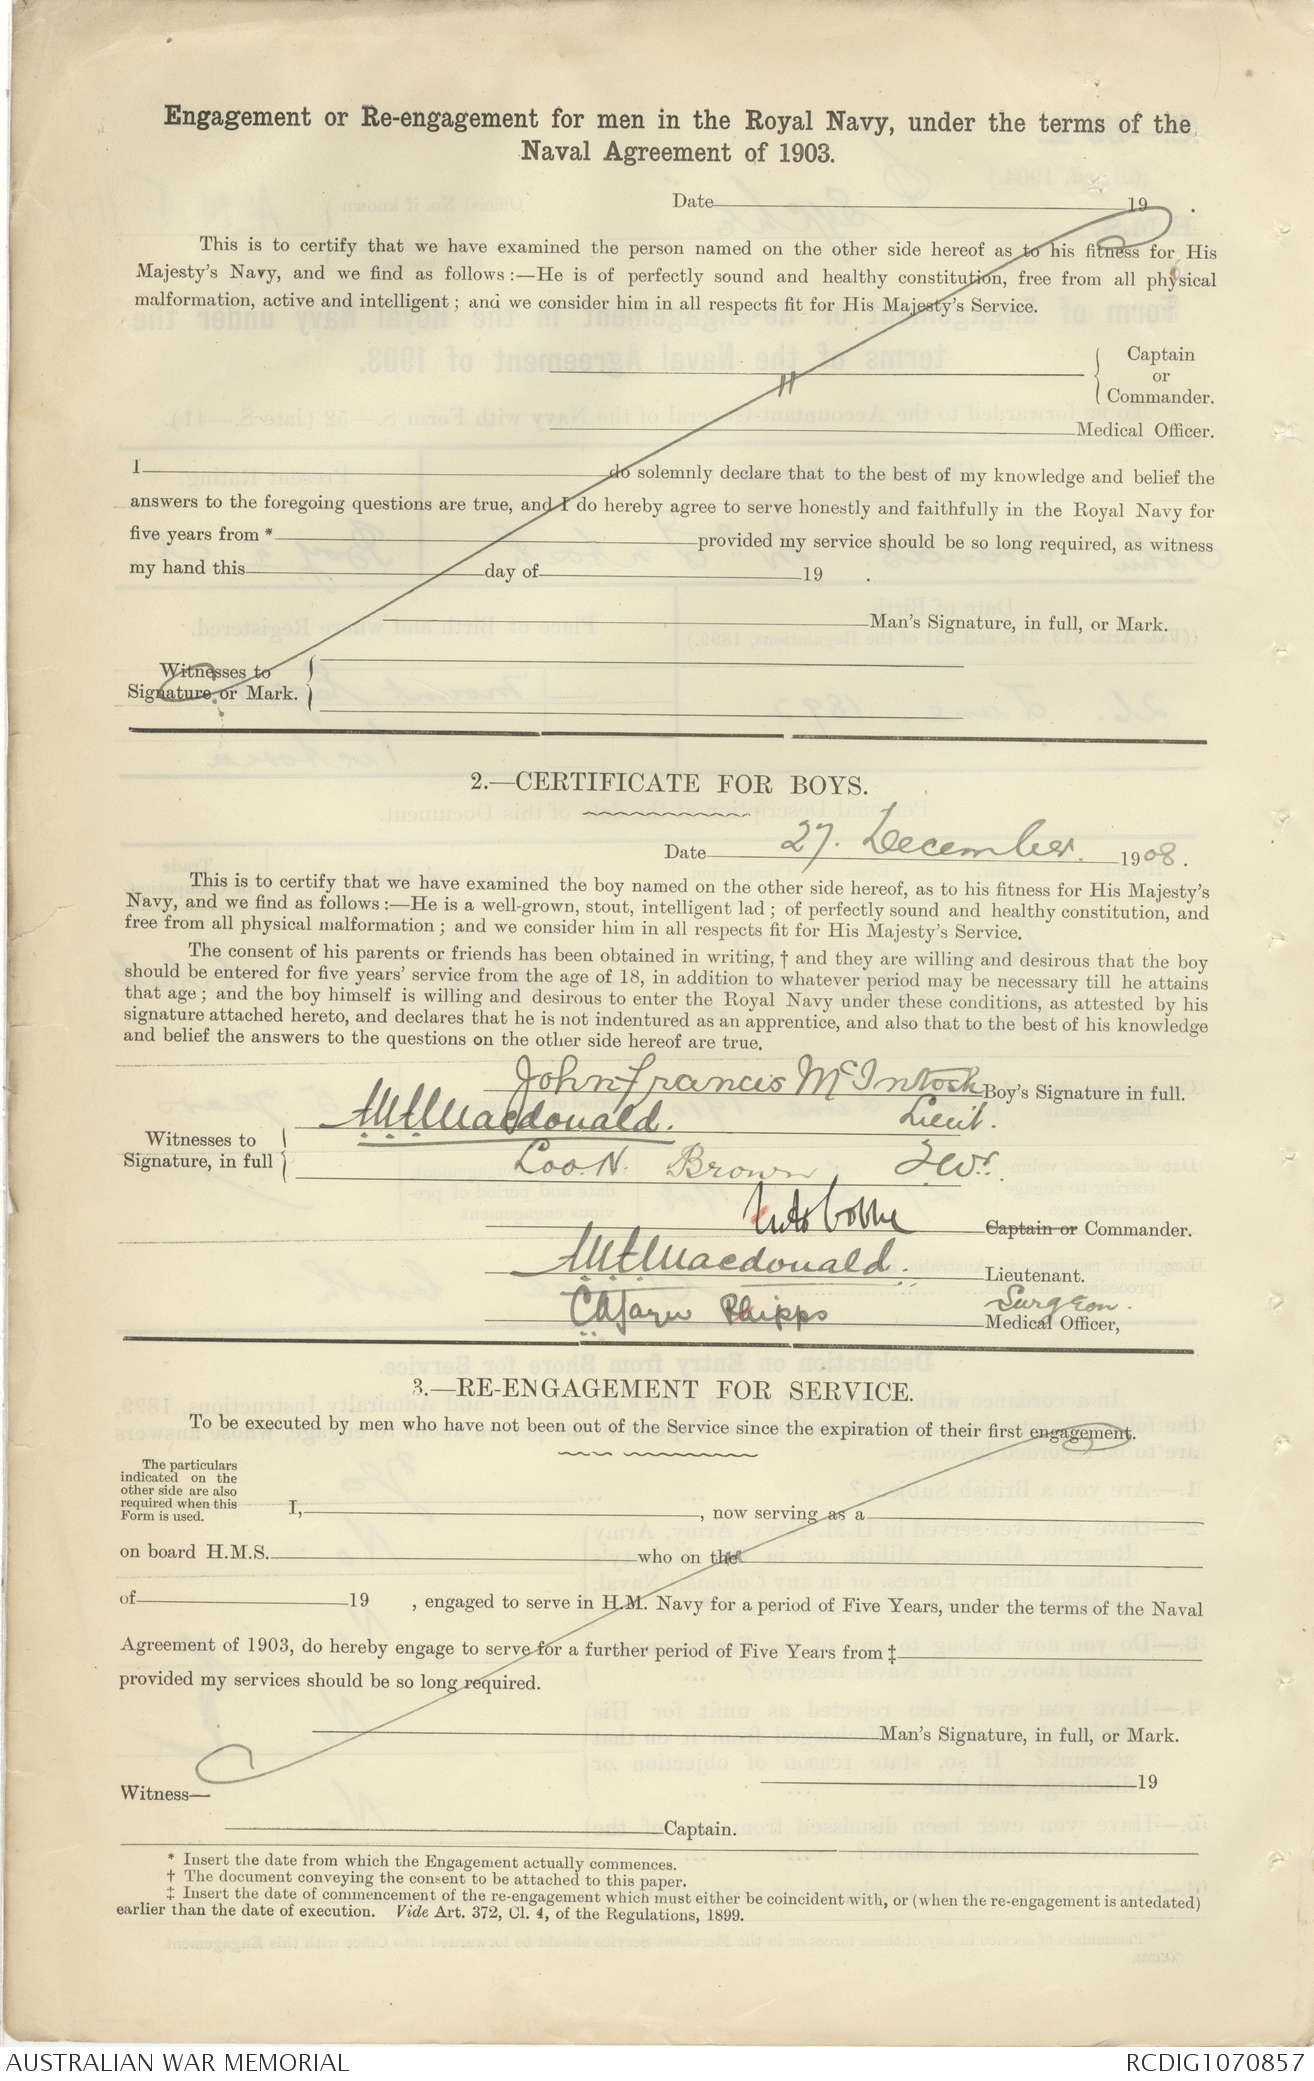 Engagement or Re-engagement for men in the Royal Navy, under the terms of the
Naval Agreement of 1903.
Date 19 .
This is to certify that we have examined the person named on the other side hereof as to his fitness for His
Majesty's Navy, and we find as follows:—He is of perfectly sound and healthy constitution, free from all physical
malformation, active and intelligent; and we consider him in all respects fit for His Majesty's Service.
Captain
or
Commander.
Medical Officer.
I do solemnly declare that to the best of my knowledge and belief the
answers to the foregoing questions are true, and I do hereby agree to serve honestly and faithfully in the Royal Navy for
five years from * provided my service should be so long required, as witness
my hand this day of 19 .
Man's Signature, in full, or Mark.
Witnesses to
Signature or Mark.
2.—CERTIFICATE FOR BOYS.
Date 27. December. 1908.
This is to certify that we have examined the boy named on the other side hereof, as to his fitness for His Majesty's
Navy, and we find as follows:—He is a well-grown, stout, intelligent lad; of perfectly sound and healthy constitution, and
free from all physical malformation; and we consider him in all respects fit for His Majesty's Service.
The consent of his parents or friends has been obtained in writing, † and they are willing and desirous that the boy
should be entered for five years' service from the age of 18, in addition to whatever period may be necessary till he attains
that age; and the boy himself is willing and desirous to enter the Royal Navy under these conditions, as attested by his
signature attached hereto, and declares that he is not indentured as an apprentice, and also that to the best of his knowledge
and belief the answers to the questions on the other side hereof are true.
John Francis McIntosh Boy's Signature in full.
Macdonald. Lieut.
Witnesses to
Signature, in full
Brown
Captain or Commander.
Macdonald. Lieutenant.
Surgeon.
Phipps Medical Officer,
3.—RE-ENGAGEMENT FOR SERVICE.
To be executed by men who have not been out of the Service since the expiration of their first engagement.
The particulars
indicated on the
other side are also
required when this
Form is used.
I, , now serving as a
on board H.M.S. who on the
of 19 , engaged to serve in H.M. Navy for a period of Five Years, under the terms of the Naval
Agreement of 1903, do hereby engage to serve for a further period of Five Years from ‡
provided my services should be so long required.
Man's Signature, in full, or Mark.
19
Witness—
Captain.
* Insert the date from which the Engagement actually commences.
† The document conveying the consent to be attached to this paper.
‡ Insert the date of commencement of the re-engagement which must either be coincident with, or (when the re-engagement is antedated)
earlier than the date of execution. Vide Art. 372, Cl. 4, of the Regulations, 1899.
AUSTRALIAN WAR MEMORIAL
RCDIG1070857